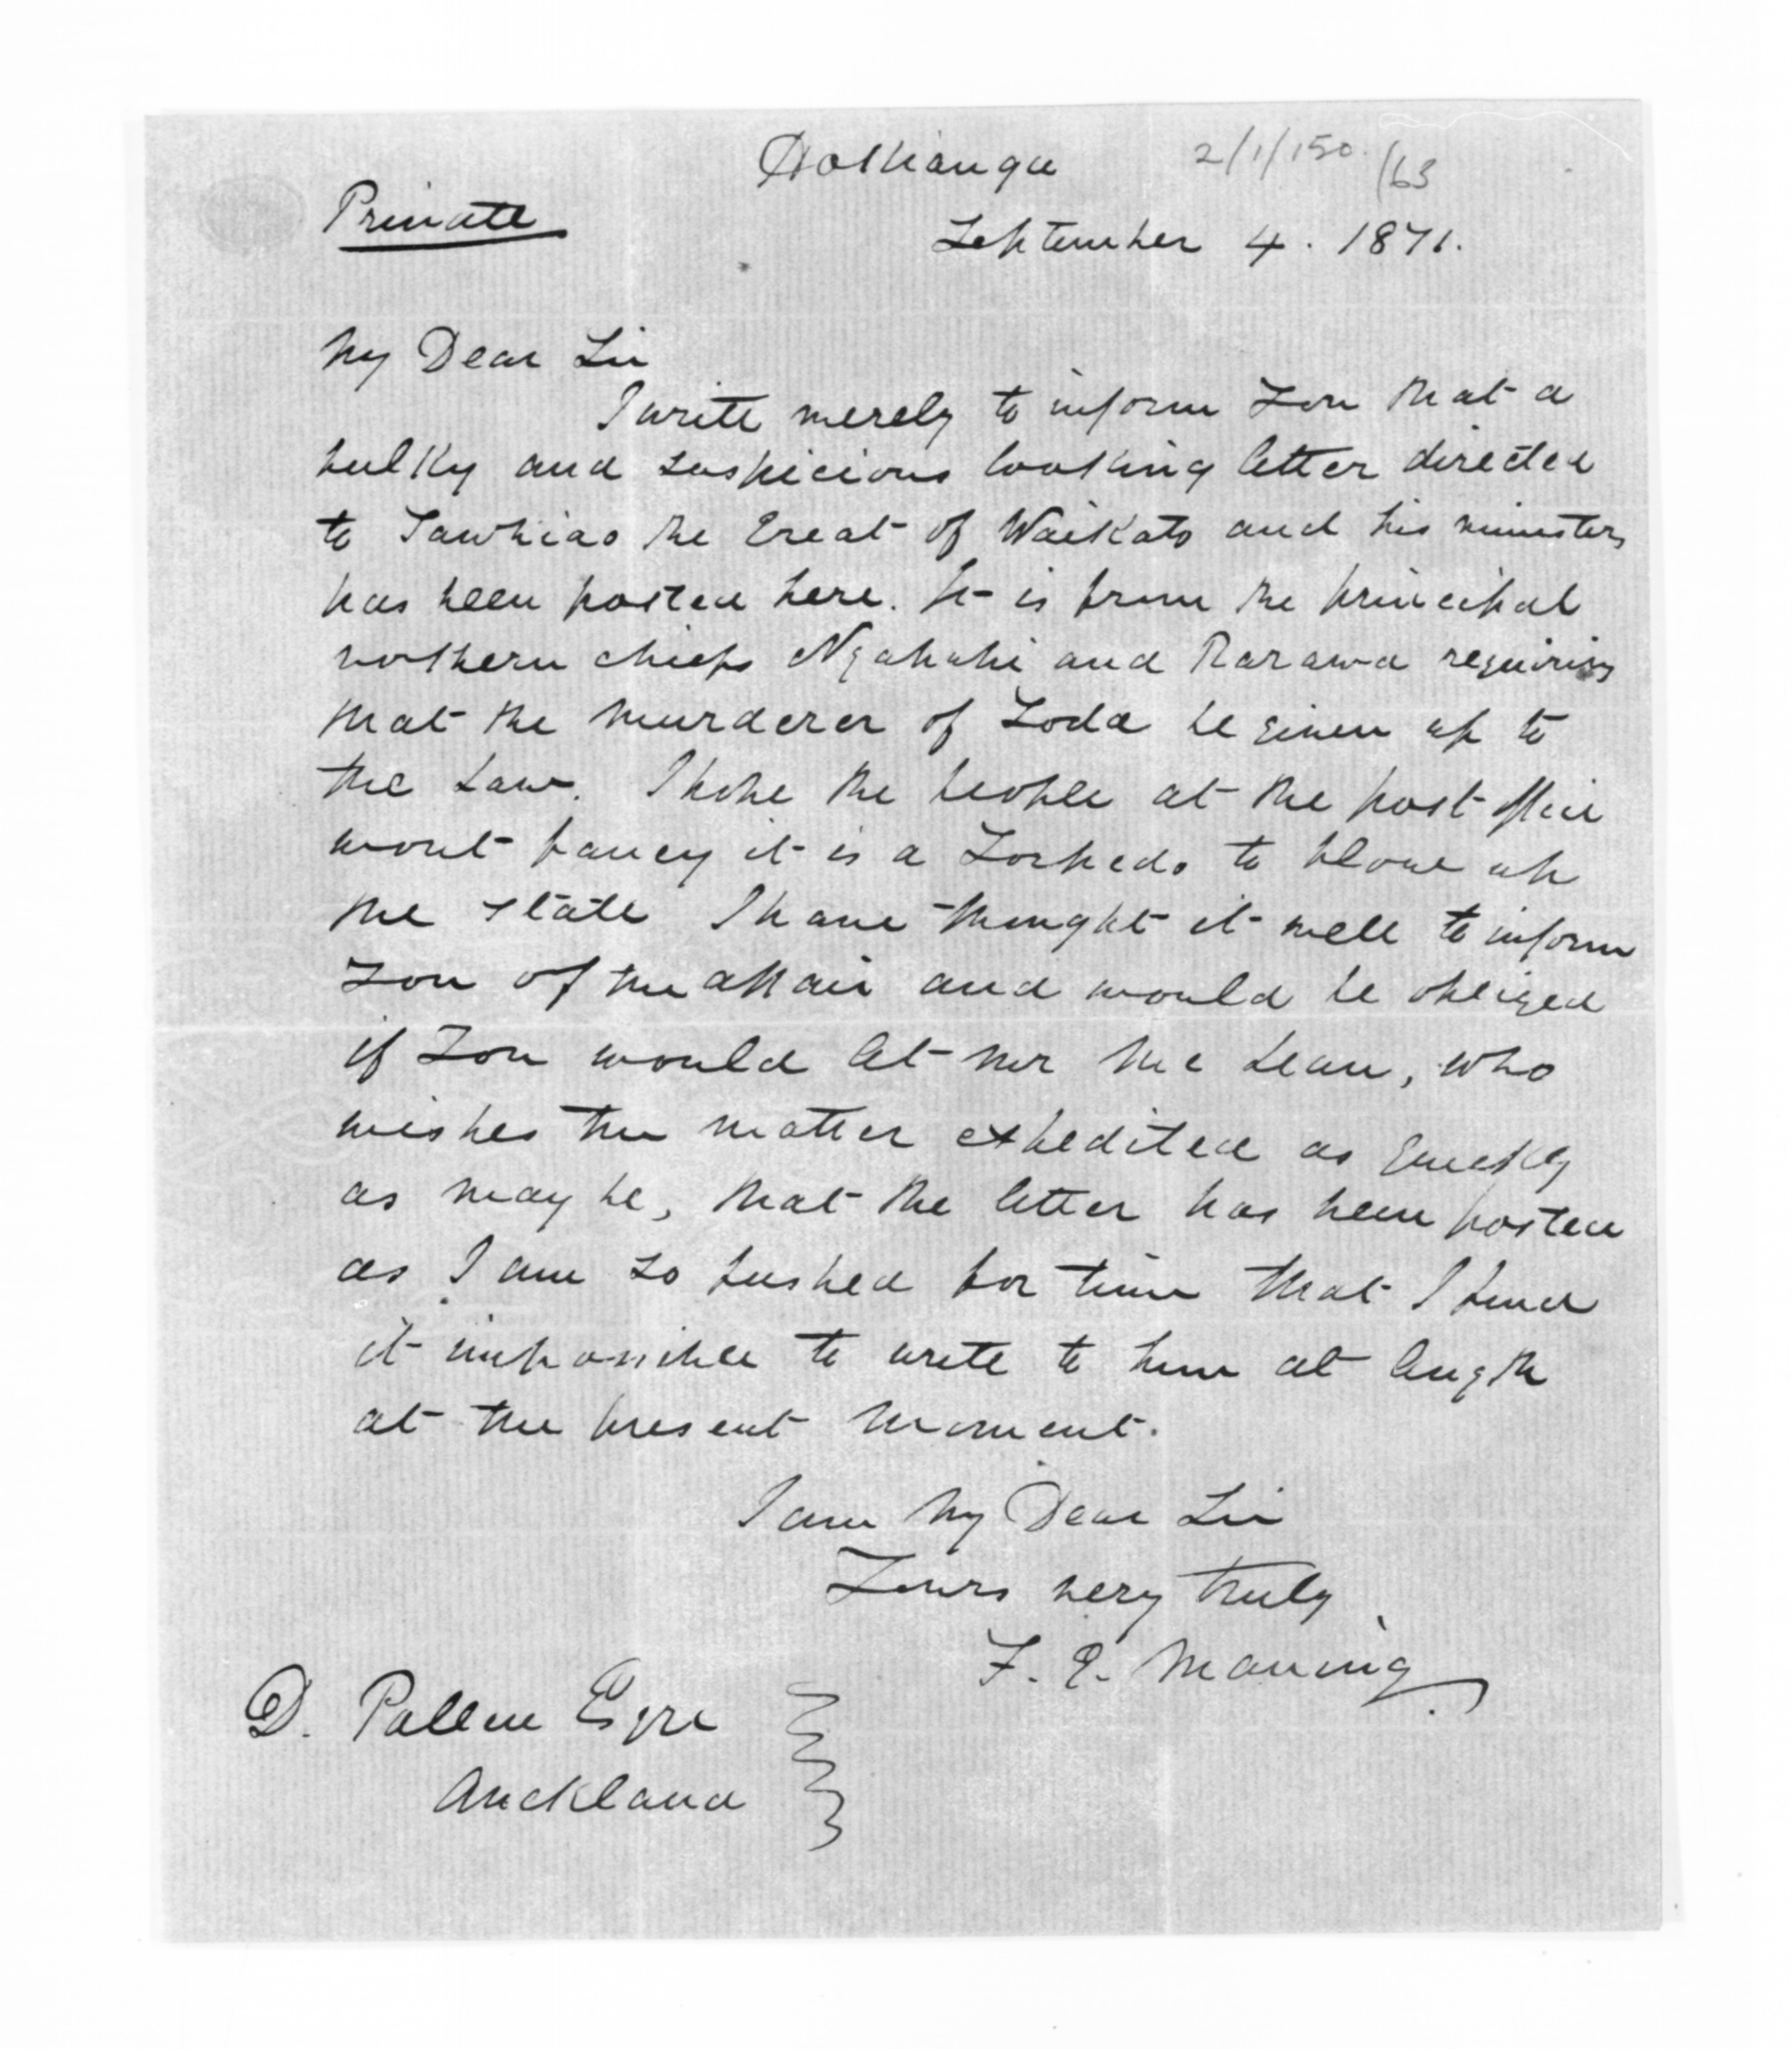 Hokianga 2/1/150 /63
Private
September 4. 1871.
My Dear Sir
I write merely to inform you that a
bulky and suspicious looking letter directed
to Tawhiao the Great of Waikato and his ministers
has been posted here. It is from the principal
northern chiefs Ngapuhi and Rarawa requiring
that the murderer of Todd be given up to
the Law. I hope the people at the post office
wont fancy it is a Torpedo to blow up
the state I have thought it well to inform
you of the affair and would be obliged
if you would let Mr Mc Lean, who
wishes the matter expedited as quickly
as may be, that the letter has been posted
as I am so pushed for time that I find
it impossible to write to him at length
at the present moment.
I am My Dear Sir
Yours very truly
F. E. Maning
D. Pollen Esqre
Auckland